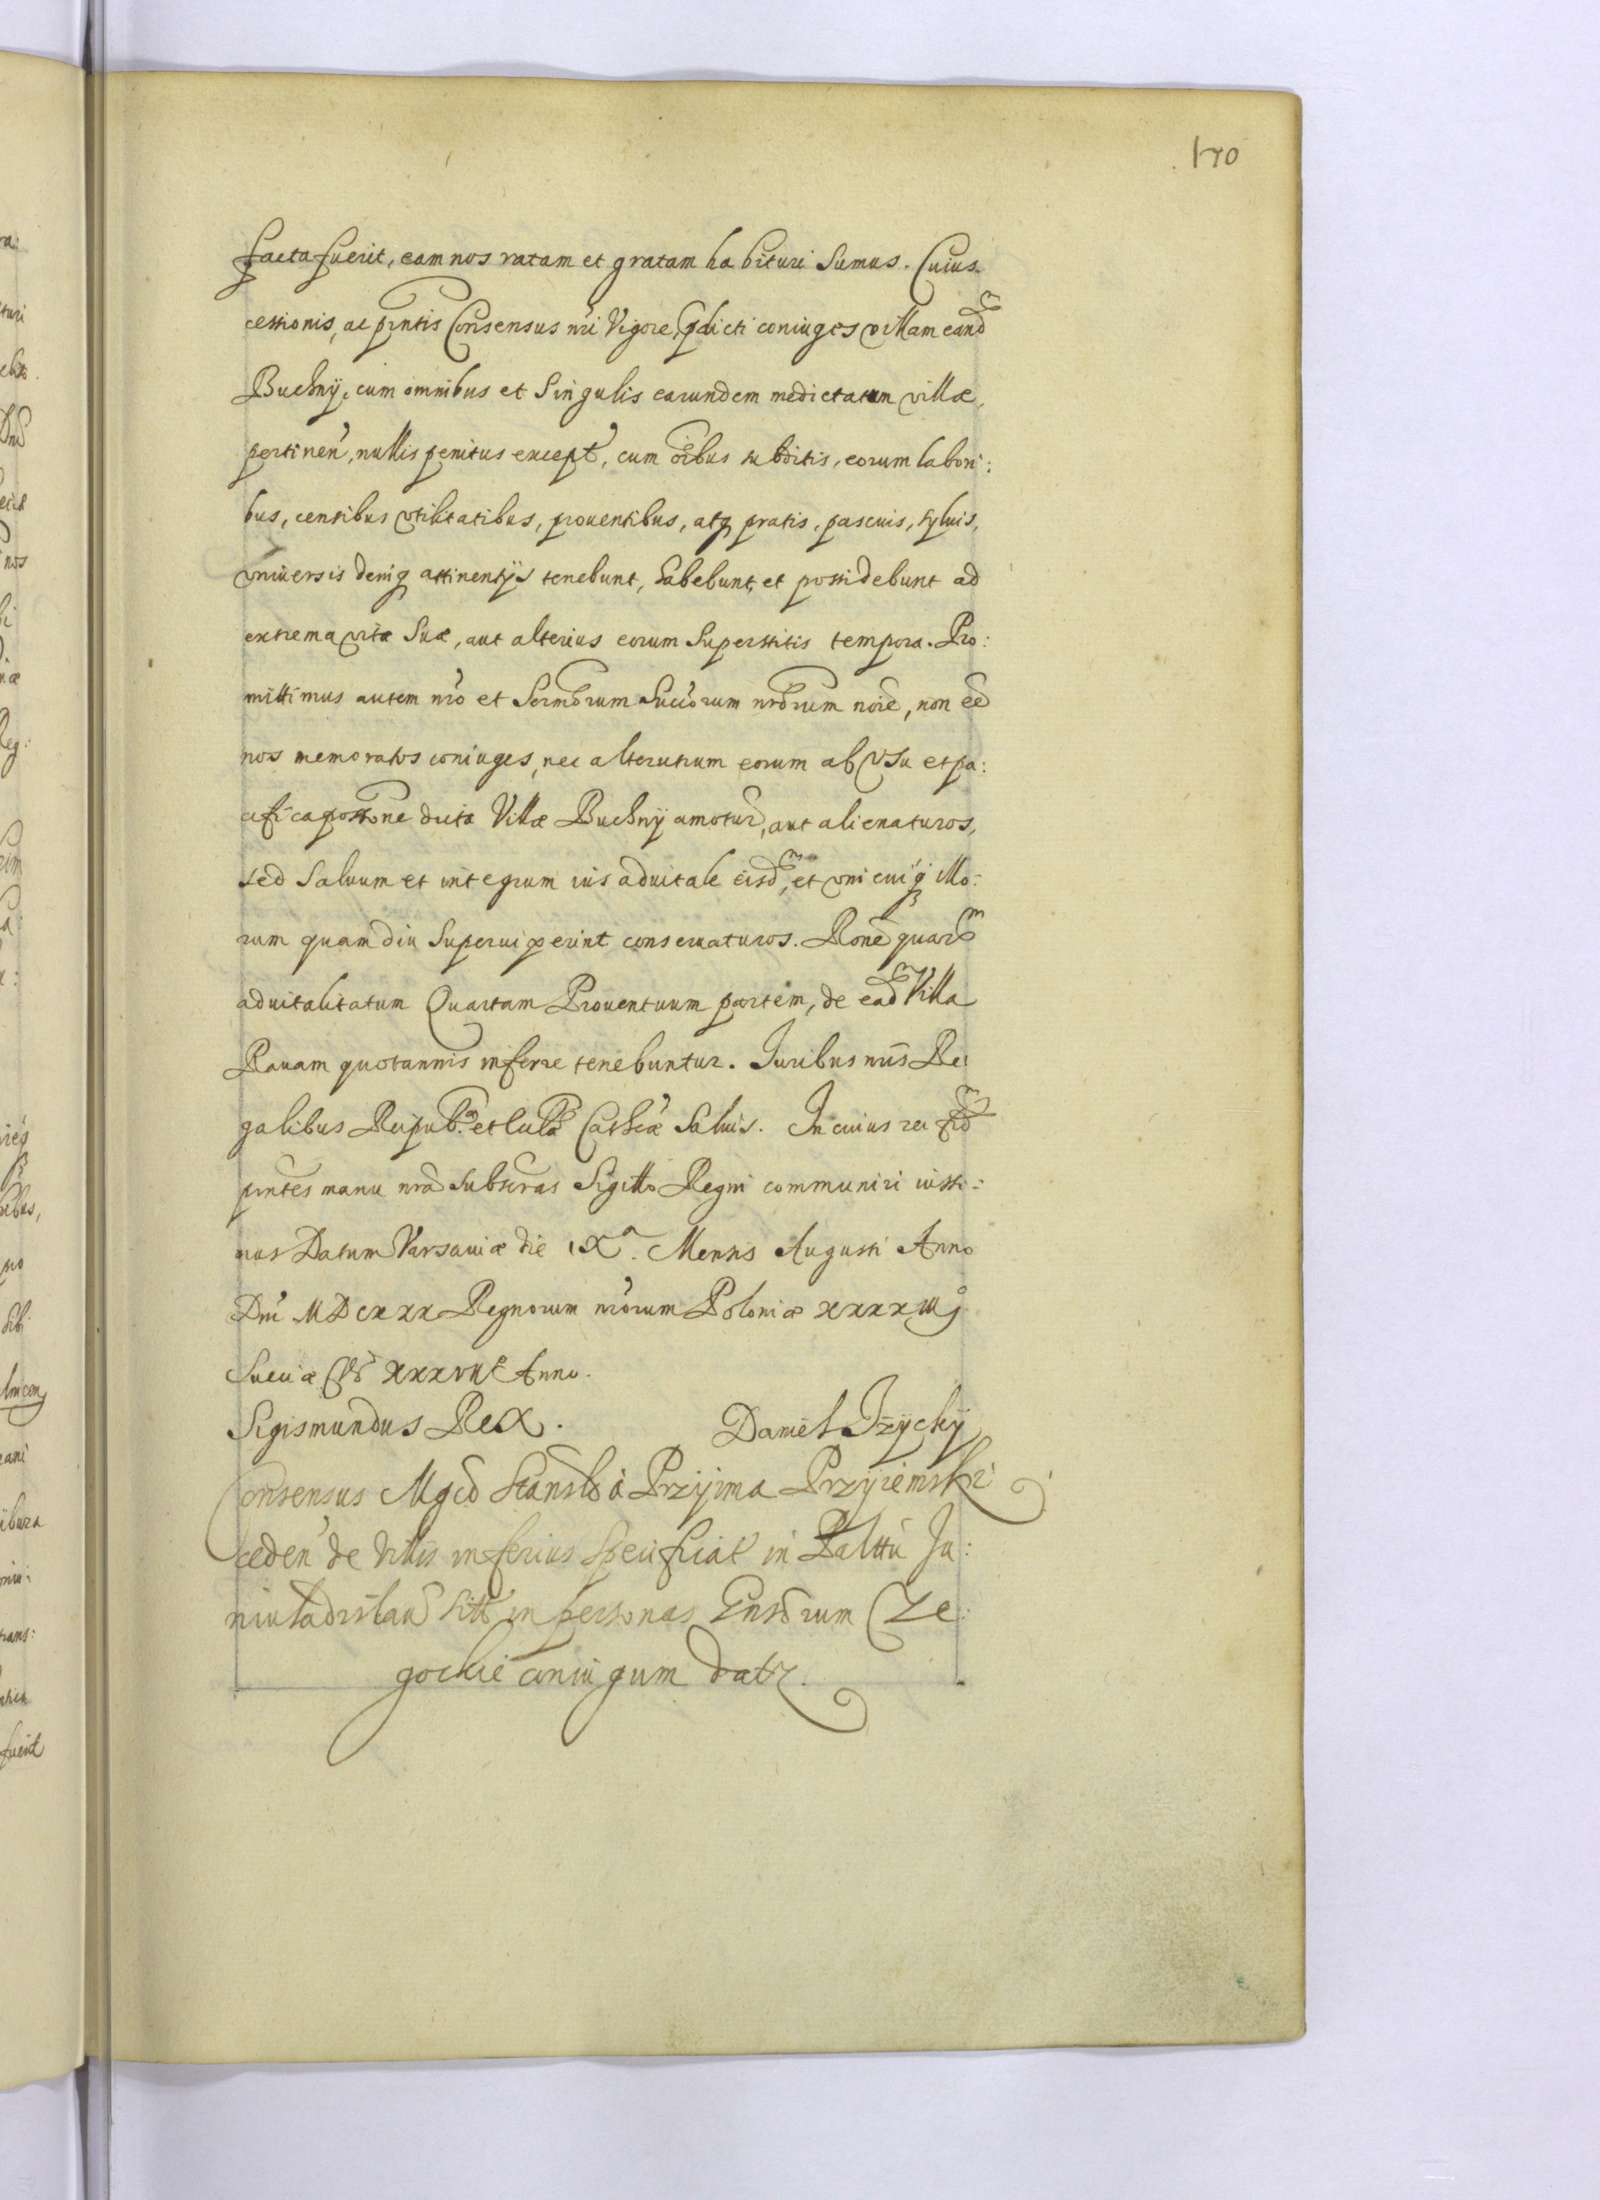 170
facta fuerit, eam nos ratam et gratam habituri sumus. Cuius
cessionis, ac pñtis Consensus nri Vigore, pdicti coniuges villam eandem
Buchny, cum omnibus et Singulis earundem medietatum villæ,
pertinen, nullis penitus except, cum oibus subditis, eorum labori:
bus, censibus vtilitatibus, prouentibus, atq pratis, pascuis, syluis,
vniuersis deniq attinentijs tenebunt, habebunt, et possidebunt ad
extrema vitæ suæ, aut alterius eorum Superstitis tempora. Pro:
mittimus autem nro et Sermorum Succorum nrorum noie, non ee
nos memoratos coniuges, nec alterutrum eorum ab vsu et pa:
cifica possone dictæ Villæ Buchny amotur, aut alienaturos,
sed Saluum et integrum ius aduitale eisdm, et vnicuiq illo:
rum quam diu Superuixerint conseruaturos. Rone quarum
aduitalitatum Quartam Prouentuum partem, de eadm Villa
Rauam quotannis inferre tenebuntur. Iuribus nris Re
galibus Reipub. et Cathcæ Saluis. In cuius rei fidm
pñtes manu nra subscras Sigillo Regni communiri iussi:
mus Datum Varsauiæ die IXa. Mensis Augusti Anno
Dni MDCXXX Regnorum nrorum Poloniæ XXXXIII
Sueciæ vo XXXVII Anno.
Sigismundus Rex. Daniel Iżycky
Consensus Mgco Stanslo à Przyima Przyiemski
ceden de Villis inferius Specificat in Palttu Ju:
niuladislaui sitt in personas Gnsorum Cze:
gockie coniugum datr.